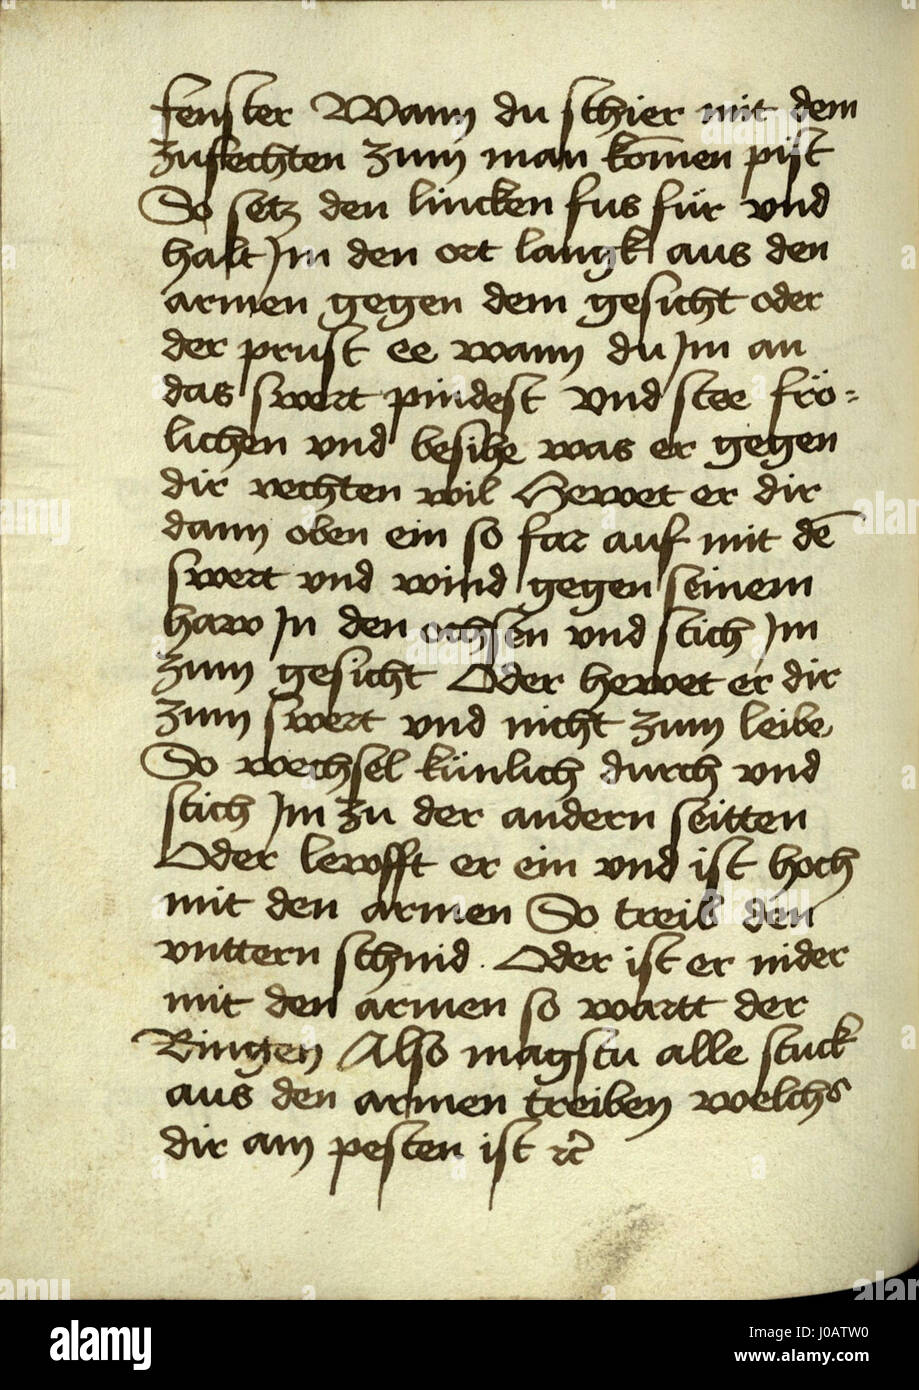 fenster Wann du schier mit dem
zufechten zum man kōmen pist
So setz den lincken fus für vnd
halt Im den ort langk aus den
armen gegen dem gesicht oder
der prust ee wann du Im an
das swert pindest vnd stee frö-
lichen vnd besihe was er gegen
dir vechten wil Hewet er dir
dann oben ein so far auf mit dē
swert vnd wind gegen seinem
haw In den ochsen vnd stich Im
zum gesicht Oder hewet er dir
zum swert vnd nicht zum leibe
So wechsel künlich durch vnd
stich Im zu der andern seitten
Oder lewfft er ein vnd ist hoch
mit den armen So treib den
vnttern schnid. Oder ist er nider
mit den armen so wartt der
Ringen Also magstu alle stuck
aus den armen treiben welchs
dir am pesten ist ꝛc̄
alamy
Image ID: J0ATW0
www.alamy.com